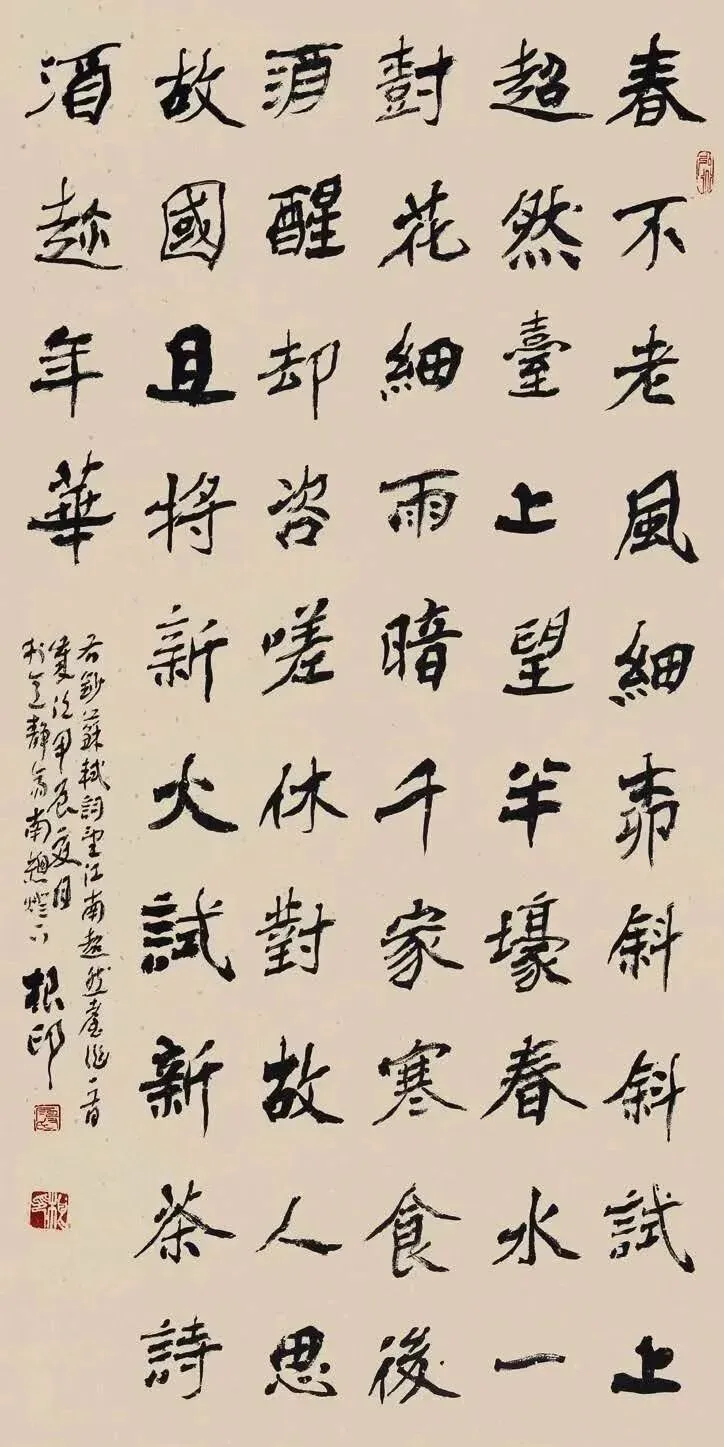 春不老風細柳斜斜試上
超然臺上望半壕春水一
尌花細雨暗千家寒食後
酒醒却咨嗟休對故人思
故國且將新火試新茶詩
酒趂年華
右鈔蘇軾詞望江南超然臺作一首
歲次甲辰夏月
於靜齋南燈下 根印